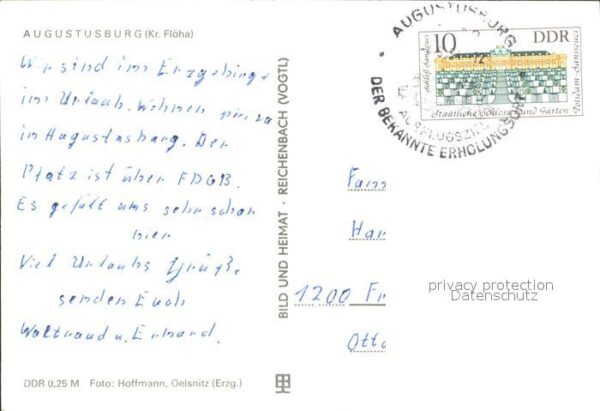 AUGUSTUSBURG (Kr. Flöha)
Wir sind im Erzgebirge
im Urlaub. Wohnen privat
in Augustusburg. Der
Platz ist über FDGB.
Es gefält uns sehr schön
hier
Viel Urlaubs Grüße
senden Euch
Waltraud u. Erhard.
DDR 0,25 M Foto: Hoffmann, Oelsnitz (Erzg.)
BILD UND HEIMAT · REICHENBACH (VOGTL)
AUGUSTUSBURG
AUSFLUGSZIEL
DER BEKANNTE ERHOLUNGSORT
10 DDR
Schloß Sanssouci
Potsdam-Sanssouci
Staatliche Schlösser und Gärten
Fam
Har
1200 Fr
Otto
privacy protection
Datenschutz